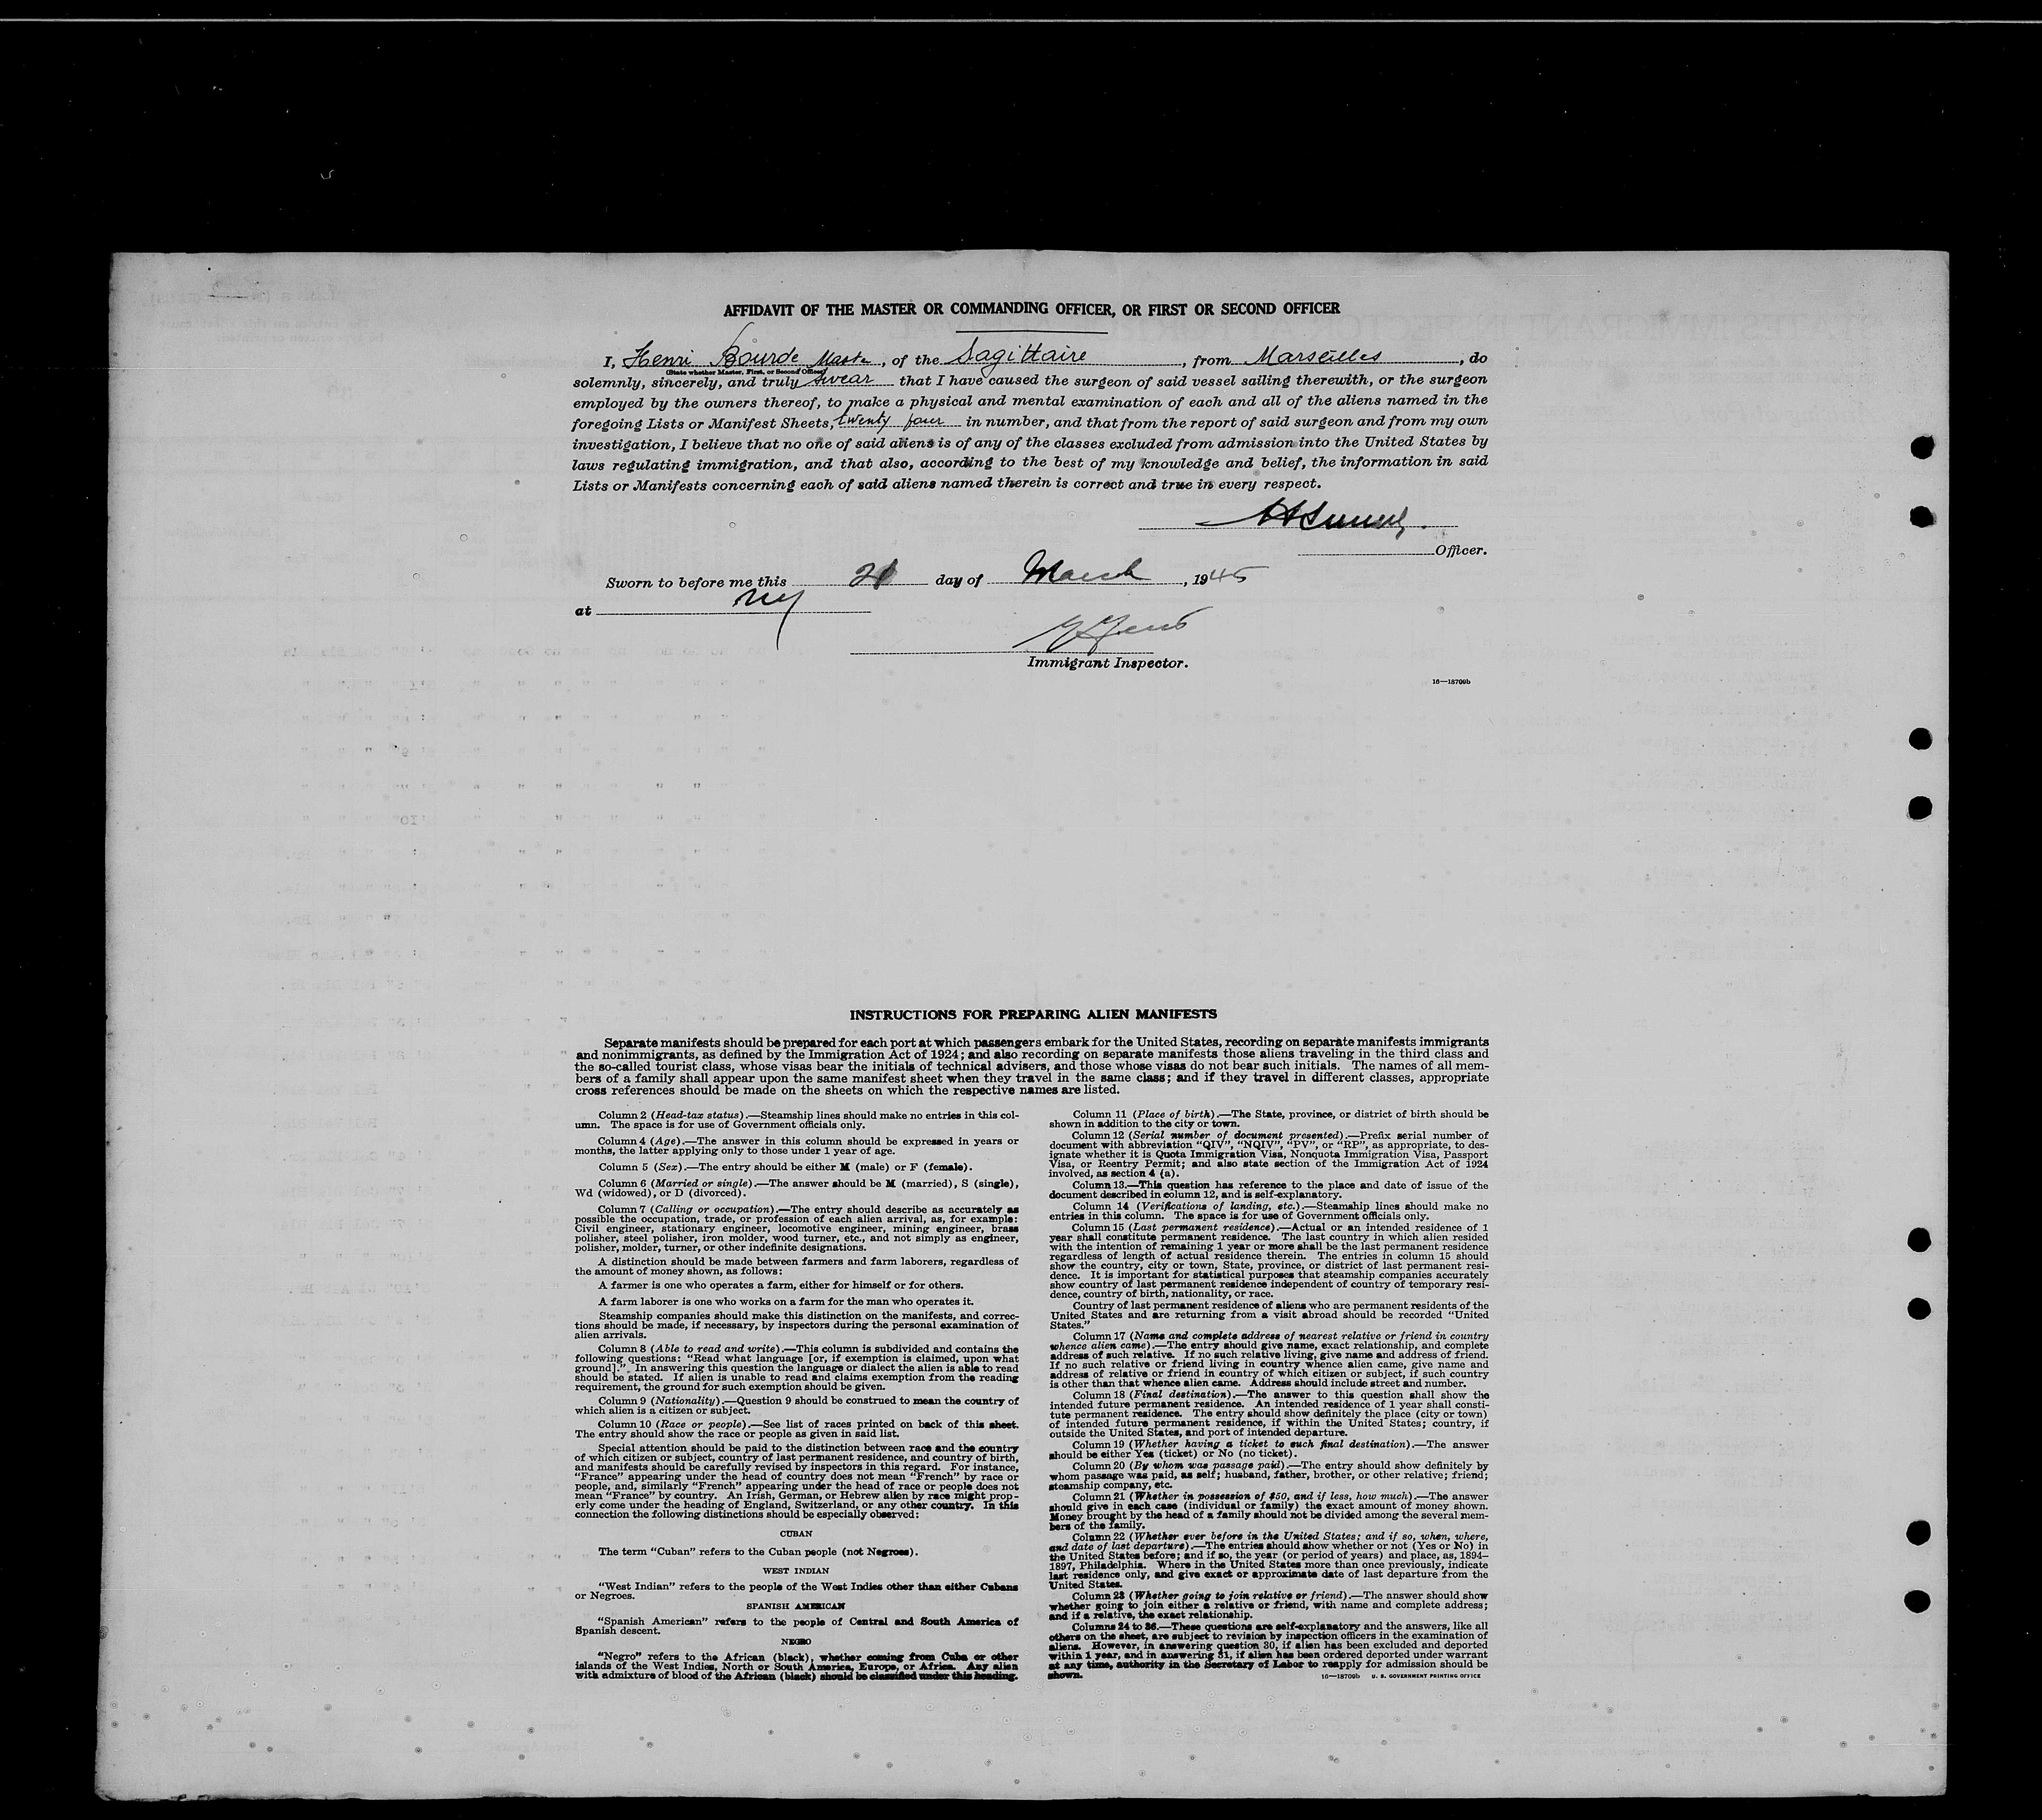 AFFIDAVIT OF THE MASTER OR COMMANDING OFFICER, OR FIRST OR SECOND OFFICER
I, Henri Bourde Master, of the Sagittaire, from Marseilles, do
(State whether Master, First, or Second Officer)
solemnly, sincerely, and truly swear that I have caused the surgeon of said vessel sailing therewith, or the surgeon
employed by the owners thereof, to make a physical and mental examination of each and all of the aliens named in the
foregoing Lists or Manifest Sheets, twenty four in number, and that from the report of said surgeon and from my own
investigation, I believe that no one of said aliens is of any of the classes excluded from admission into the United States by
laws regulating immigration, and that also, according to the best of my knowledge and belief, the information in said
Lists or Manifests concerning each of said aliens named therein is correct and true in every respect.
Officer.
Sworn to before me this 21 day of March, 1945
at NY
Immigrant Inspector.
16—18709b
INSTRUCTIONS FOR PREPARING ALIEN MANIFESTS
Separate manifests should be prepared for each port at which passengers embark for the United States, recording on separate manifests immigrants
and nonimmigrants, as defined by the Immigration Act of 1924; and also recording on separate manifests those aliens traveling in the third class and
the so-called tourist class, whose visas bear the initials of technical advisers, and those whose visas do not bear such initials. The names of all mem-
bers of a family shall appear upon the same manifest sheet when they travel in the same class; and if they travel in different classes, appropriate
cross references should be made on the sheets on which the respective names are listed.
Column 2 (Head-tax status).—Steamship lines should make no entries in this col-
umn. The space is for use of Government officials only.
Column 4 (Age).—The answer in this column should be expressed in years or
months, the latter applying only to those under 1 year of age.
Column 5 (Sex).—The entry should be either M (male) or F (female).
Column 6 (Married or single).—The answer should be M (married), S (single),
Wd (widowed), or D (divorced).
Column 7 (Calling or occupation).—The entry should describe as accurately as
possible the occupation, trade, or profession of each alien arrival, as, for example:
Civil engineer, stationary engineer, locomotive engineer, mining engineer, brass
polisher, steel polisher, iron molder, wood turner, etc., and not simply as engineer,
polisher, molder, turner, or other indefinite designations.
A distinction should be made between farmers and farm laborers, regardless of
the amount of money shown, as follows:
A farmer is one who operates a farm, either for himself or for others.
A farm laborer is one who works on a farm for the man who operates it.
Steamship companies should make this distinction on the manifests, and correc-
tions should be made, if necessary, by inspectors during the personal examination of
alien arrivals.
Column 8 (Able to read and write).—This column is subdivided and contains the
following questions: “Read what language [or, if exemption is claimed, upon what
ground].”. In answering this question the language or dialect the alien is able to read
should be stated. If alien is unable to read and claims exemption from the reading
requirement, the ground for such exemption should be given.
Column 9 (Nationality).—Question 9 should be construed to mean the country of
which alien is a citizen or subject.
Column 10 (Race or people).—See list of races printed on back of this sheet.
The entry should show the race or people as given in said list.
Special attention should be paid to the distinction between race and the country
of which citizen or subject, country of last permanent residence, and country of birth,
and manifests should be carefully revised by inspectors in this regard. For instance,
“France” appearing under the head of country does not mean “French” by race or
people, and, similarly “French” appearing under the head of race or people does not
mean “France” by country. An Irish, German, or Hebrew alien by race might prop-
erly come under the heading of England, Switzerland, or any other country. In this
connection the following distinctions should be especially observed:
CUBAN
The term “Cuban” refers to the Cuban people (not Negroes).
WEST INDIAN
“West Indian” refers to the people of the West Indies other than either Cubans
or Negroes.
SPANISH AMERICAN
“Spanish American” refers to the people of Central and South America of
Spanish descent.
NEGRO
“Negro” refers to the African (black), whether coming from Cuba or other
islands of the West Indies, North or South America, Europe, or Africa. Any alien
with admixture of blood of the African (black) should be classified under this heading.
Column 11 (Place of birth).—The State, province, or district of birth should be
shown in addition to the city or town.
Column 12 (Serial number of document presented).—Prefix serial number of
document with abbreviation “QIV”, “NQIV”, “PV”, or “RP”, as appropriate, to des-
ignate whether it is Quota Immigration Visa, Nonquota Immigration Visa, Passport
Visa, or Reentry Permit; and also state section of the Immigration Act of 1924
involved, as section 4 (a).
Column 13.—This question has reference to the place and date of issue of the
document described in column 12, and is self-explanatory.
Column 14 (Verifications of landing, etc.).—Steamship lines should make no
entries in this column. The space is for use of Government officials only.
Column 15 (Last permanent residence).—Actual or an intended residence of 1
year shall constitute permanent residence. The last country in which alien resided
with the intention of remaining 1 year or more shall be the last permanent residence
regardless of length of actual residence therein. The entries in column 15 should
show the country, city or town, State, province, or district of last permanent resi-
dence. It is important for statistical purposes that steamship companies accurately
show country of last permanent residence independent of country of temporary resi-
dence, country of birth, nationality, or race.
Country of last permanent residence of aliens who are permanent residents of the
United States and are returning from a visit abroad should be recorded “United
States.”
Column 17 (Name and complete address of nearest relative or friend in country
whence alien came).—The entry should give name, exact relationship, and complete
address of such relative. If no such relative living, give name and address of friend.
If no such relative or friend living in country whence alien came, give name and
address of relative or friend in country of which citizen or subject, if such country
is other than that whence alien came. Address should include street and number.
Column 18 (Final destination).—The answer to this question shall show the
intended future permanent residence. An intended residence of 1 year shall consti-
tute permanent residence. The entry should show definitely the place (city or town)
of intended future permanent residence, if within the United States; country, if
outside the United States, and port of intended departure.
Column 19 (Whether having a ticket to such final destination).—The answer
should be either Yes (ticket) or No (no ticket).
Column 20 (By whom was passage paid).—The entry should show definitely by
whom passage was paid, as self; husband, father, brother, or other relative; friend;
steamship company, etc.
Column 21 (Whether in possession of $50, and if less, how much).—The answer
should give in each case (individual or family) the exact amount of money shown.
Money brought by the head of a family should not be divided among the several mem-
bers of the family.
Column 22 (Whether ever before in the United States; and if so, when, where,
and date of last departure).—The entries should show whether or not (Yes or No) in
the United States before; and if so, the year (or period of years) and place, as, 1894–
1897, Philadelphia. Where in the United States more than once previously, indicate
last residence only, and give exact or approximate date of last departure from the
United States.
Column 23 (Whether going to join relative or friend).—The answer should show
whether going to join either a relative or friend, with name and complete address;
and if a relative, the exact relationship.
Columns 24 to 36.—These questions are self-explanatory and the answers, like all
others on the sheet, are subject to revision by inspection officers in the examination of
aliens. However, in answering question 30, if alien has been excluded and deported
within 1 year, and in answering 31, if alien has been ordered deported under warrant
at any time, authority in the Secretary of Labor to reapply for admission should be
shown.
16—18709b U. S. GOVERNMENT PRINTING OFFICE